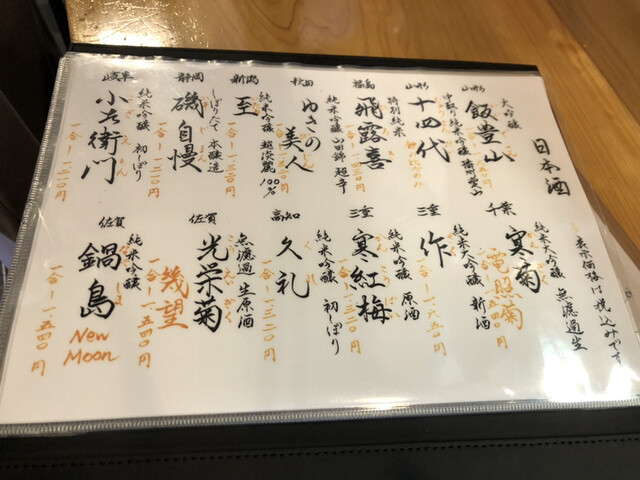 日本酒
表示価格は税込みです
山形
大吟醸
飯豊山
山形
中取り純米吟醸 播州愛山
十四代
福島
特別純米
飛露喜
秋田
純米吟醸 山田錦 超辛
ゆきの美人
新潟
純米吟醸 越淡麗100%
至
静岡
しぼりたて 本醸造
磯自慢
一合一一二一〇円
岐阜
純米吟醸 初しぼり
小左衛門
一合一一三一〇円
千葉
純米大吟醸 無濾過生
寒菊
電照菊
三重
純米大吟醸 新酒
作
一合一一、六五〇円
三重
純米吟醸 原酒
寒紅梅
高知
純米吟醸 初しぼり
久礼
一合一一三二〇円
佐賀
無濾過 生原酒
光栄菊
幾望
一合一一、五四〇円
佐賀
純米吟醸
鍋島
New Moon
一合一一、五四〇円